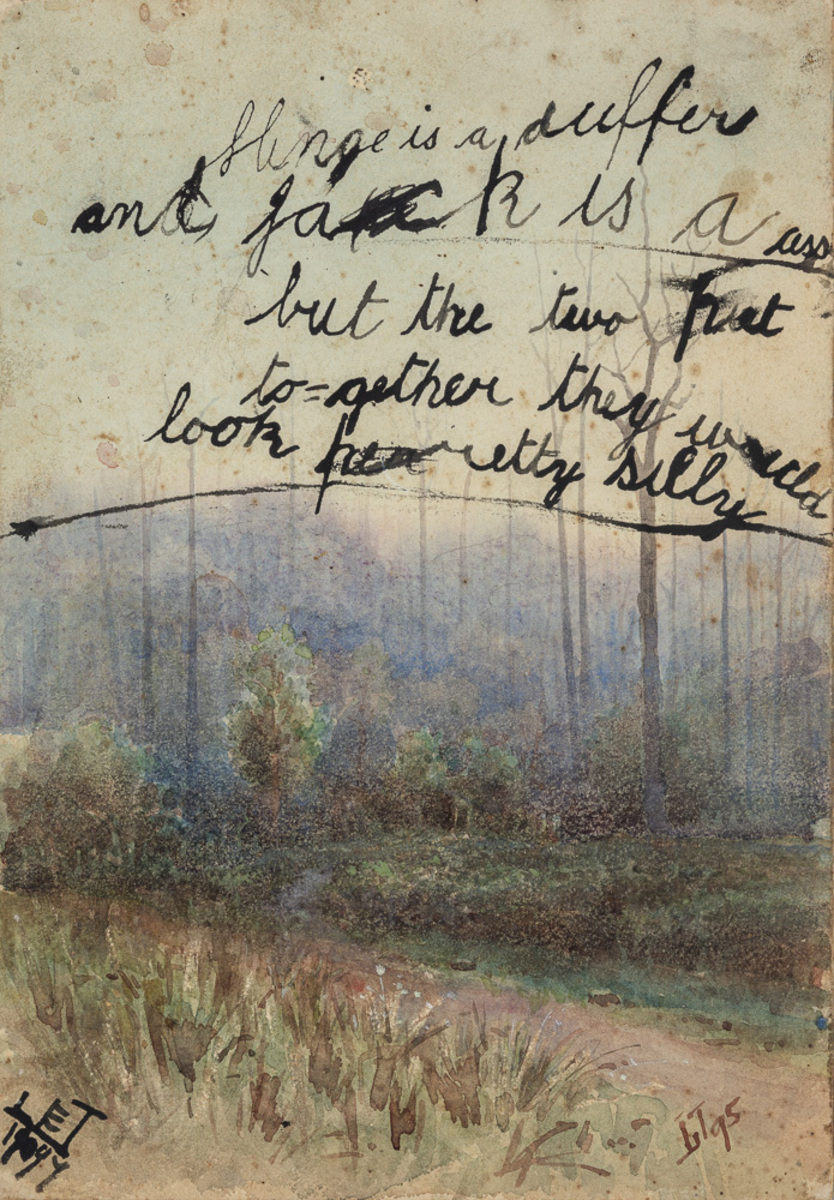 is a duffer
and jack is a ass
but the two put
to=gether they would
look pretty silly
LET
LT 95